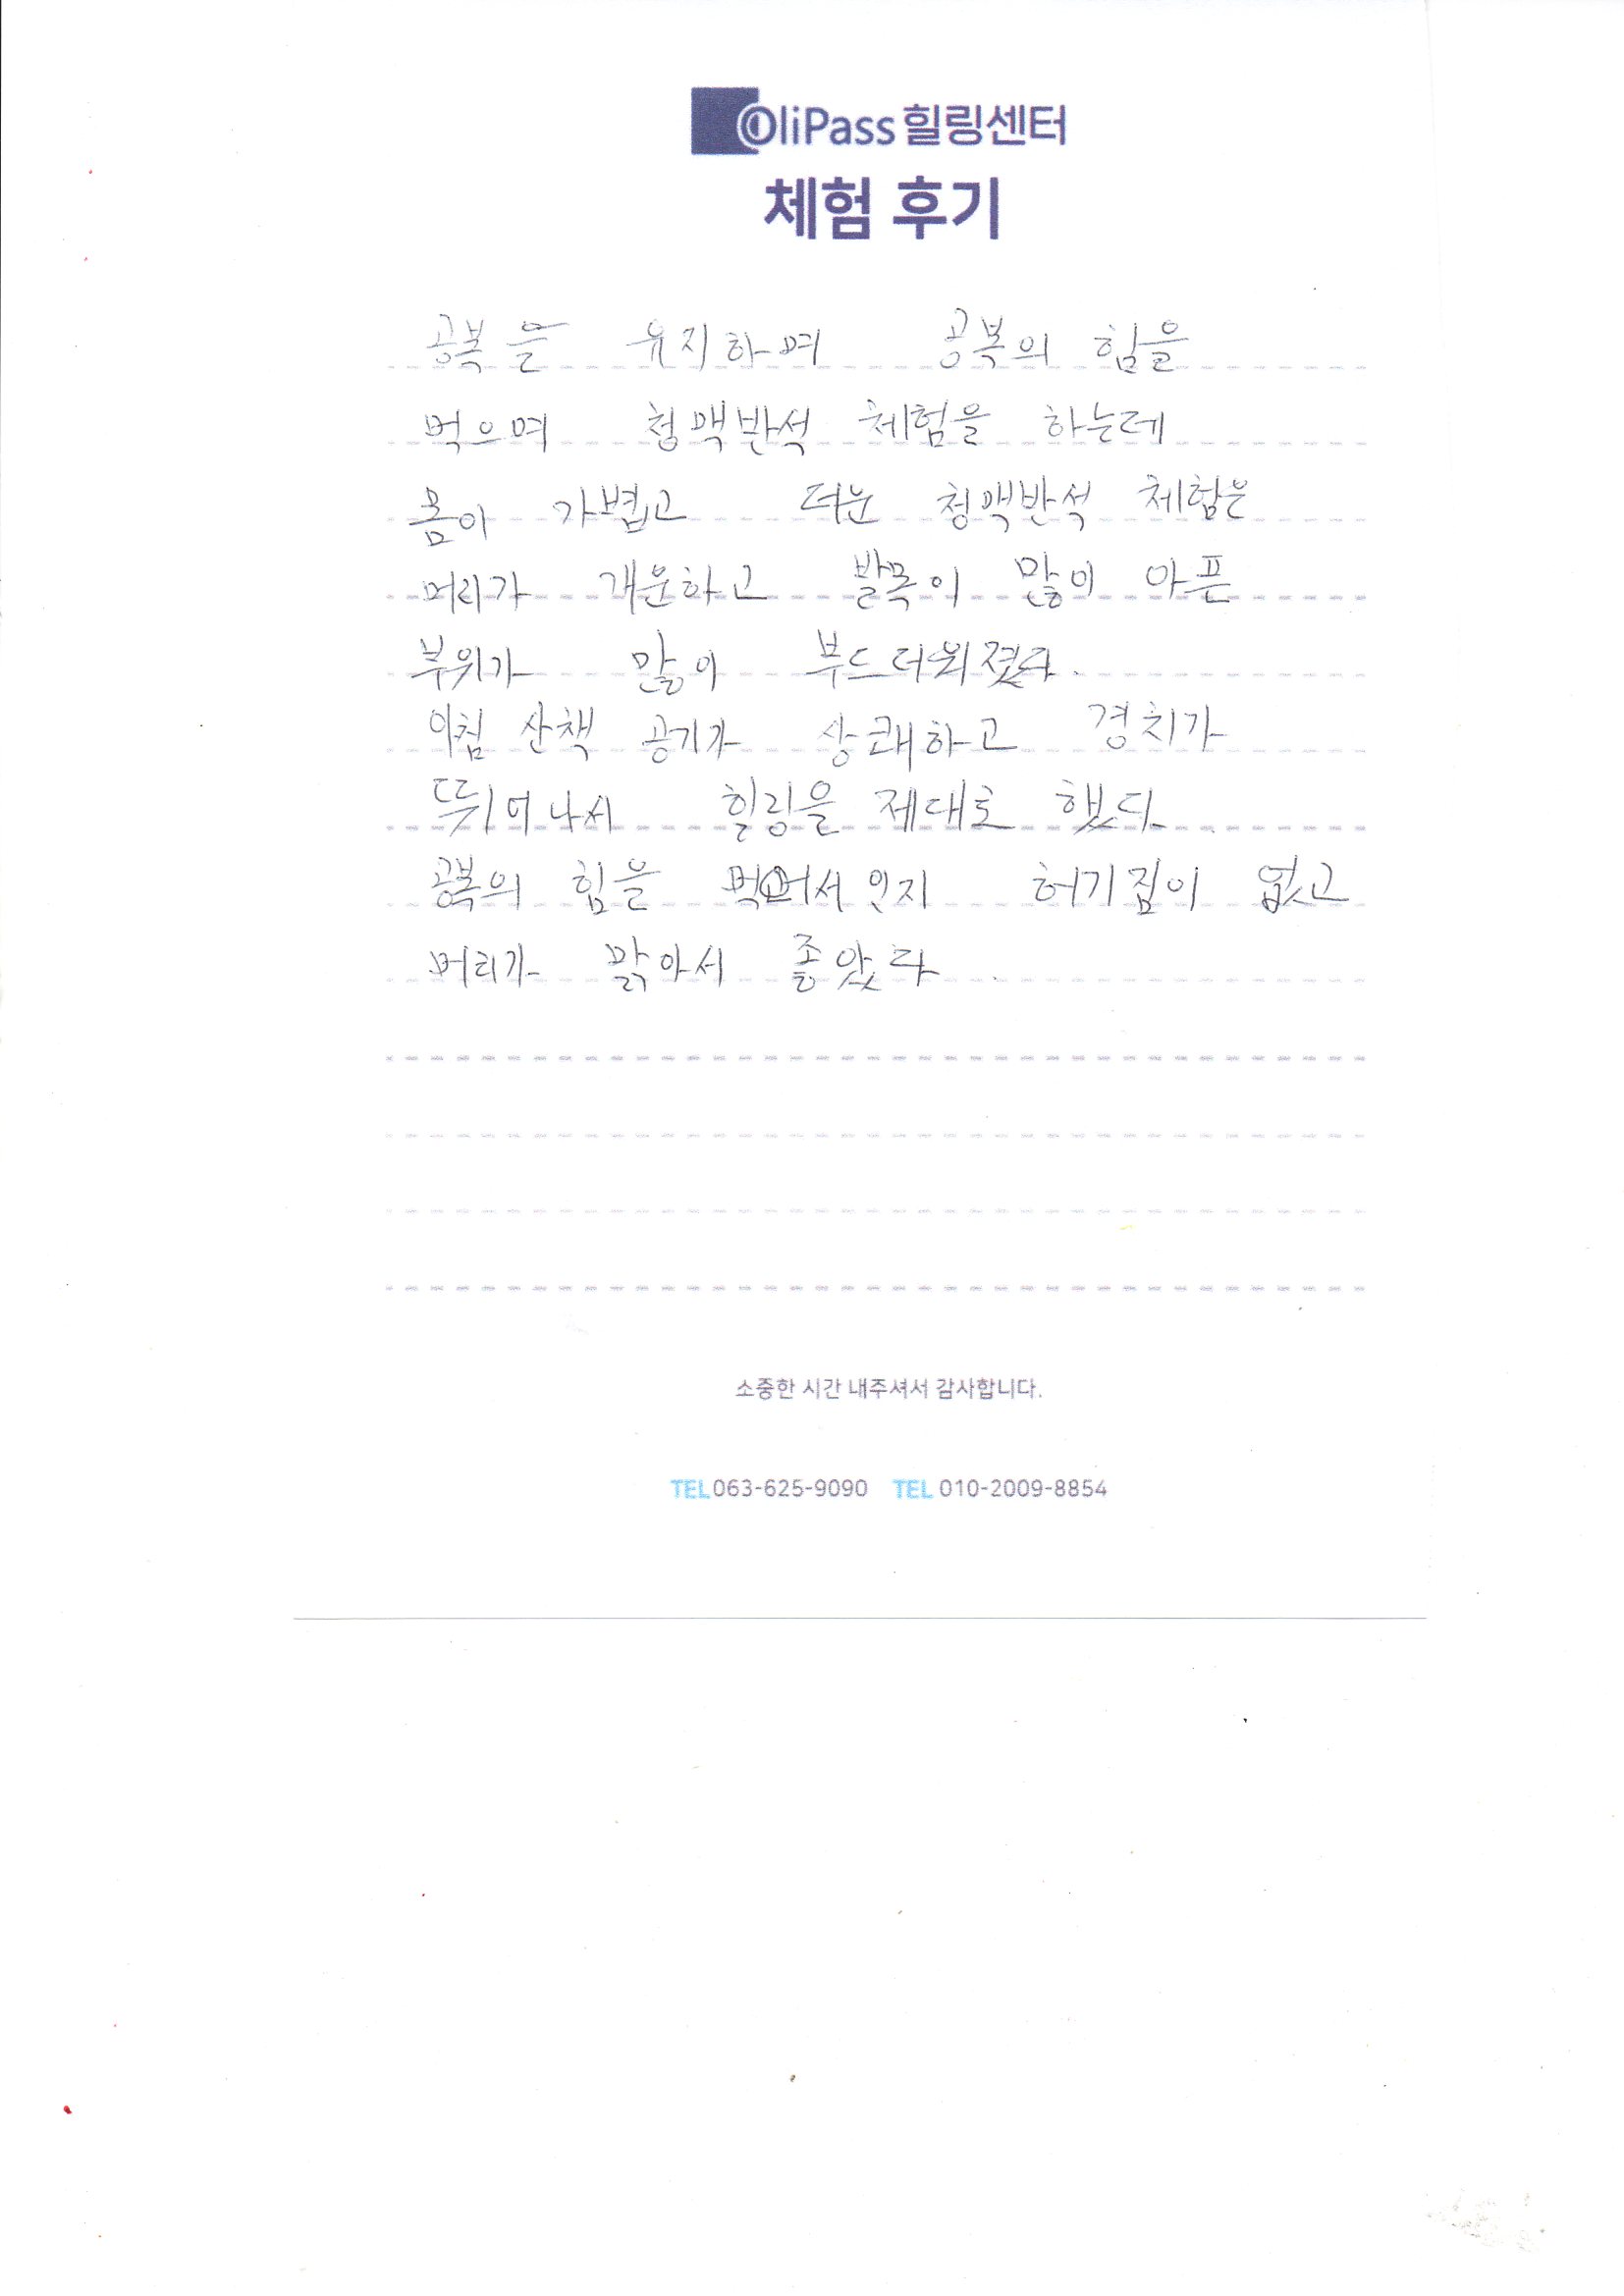 OliPass 힐링센터
체험 후기
공복을 유지하며 공복의 힘을
먹으며 청맥반석 체험을 하는데
몸이 가볍고 더운 청맥반석 체험은
머리가 개운하고 발목이 많이 아픈
부위가 많이 부드러워졌다.
아침 산책 공기가 상쾌하고 경치가
뛰어나서 힐링을 제대로 했다.
공복의 힘을 먹어서인지 허기짐이 없고
머리가 맑아서 좋았다.
소중한 시간 내주셔서 감사합니다.
TEL 063-625-9090 TEL 010-2009-8854